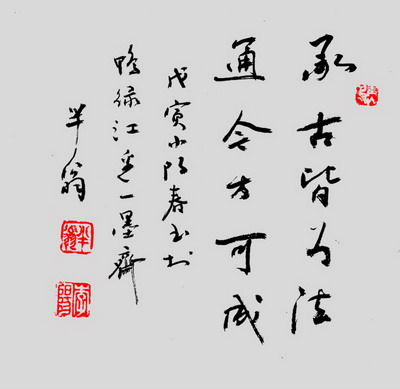 承古皆为法
通今方可成
戊寅小阳春书于
鸭绿江边一墨齋
半翁